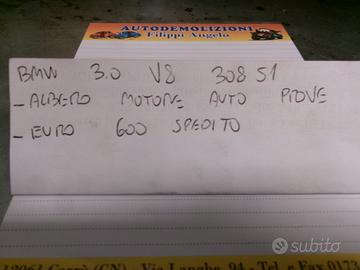 AUTODEMOLIZIONI
Filippi Angelo
BMW 3.0 V8 308 S1
- ALBERO MOTORE AUTO PROVE
- EURO 600 SPEDITO
(CN) - Via Langhe, 94 - Tel. - Fax 0173
subito